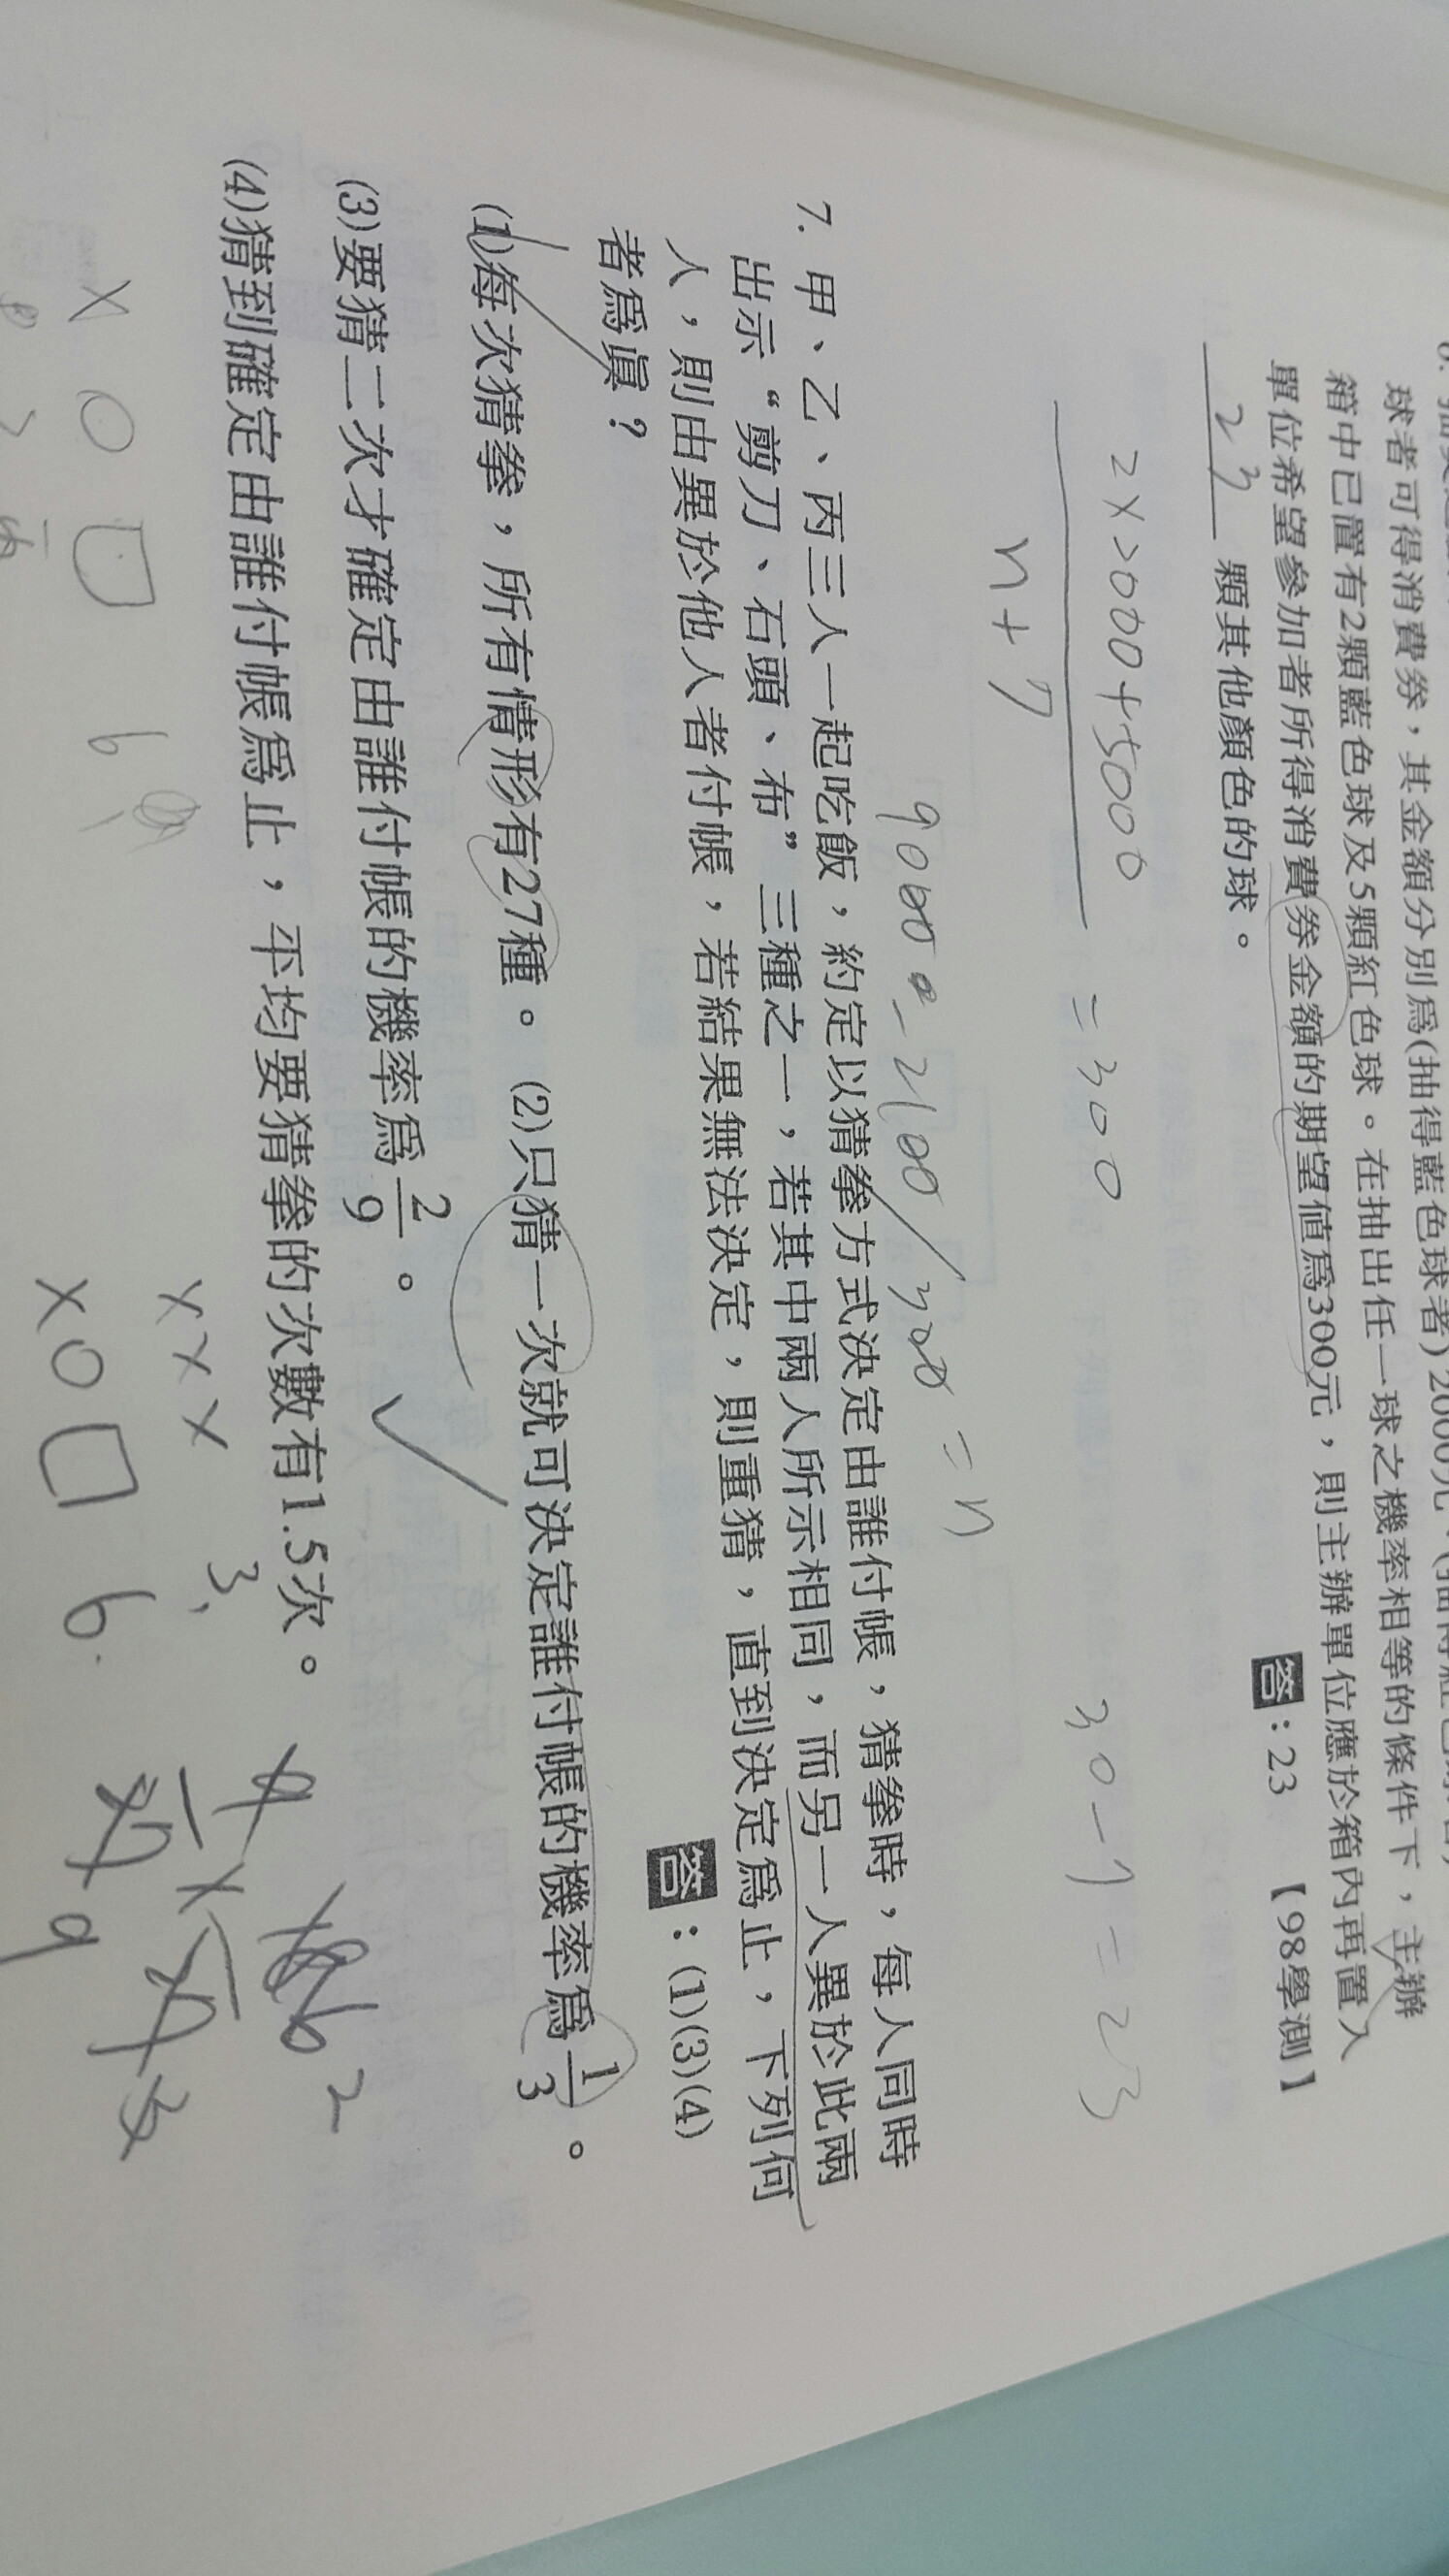 球者可得消費券，其金額分別為(抽得藍色球者)2000元、
箱中已置有2顆藍色球及5顆紅色球。在抽出任一球之機率相等的條件下，主辦
單位希望參加者所得消費券金額的期望值為300元，則主辦單位應於箱內再置入
23 顆其他顏色的球。
答：23 【98學測】
2×2000+5000
n+7
=300
30-7=23
9000-2100/300=n
7. 甲、乙、丙三人一起吃飯，約定以猜拳方式決定由誰付帳，猜拳時，每人同時
出示“剪刀、石頭、布”三種之一，若其中兩人所示相同，而另一人異於此兩
人，則由異於他人者付帳，若結果無法決定，則重猜，直到決定為止，下列何
者為眞？
答：(1)(3)(4)
(1)每次猜拳，所有情形有27種。 (2)只猜一次就可決定誰付帳的機率為1/3。
(3)要猜二次才確定由誰付帳的機率為2/9。
(4)猜到確定由誰付帳為止，平均要猜拳的次數有1.5次。
×××
3,
×○□ 6
×○□ 6.